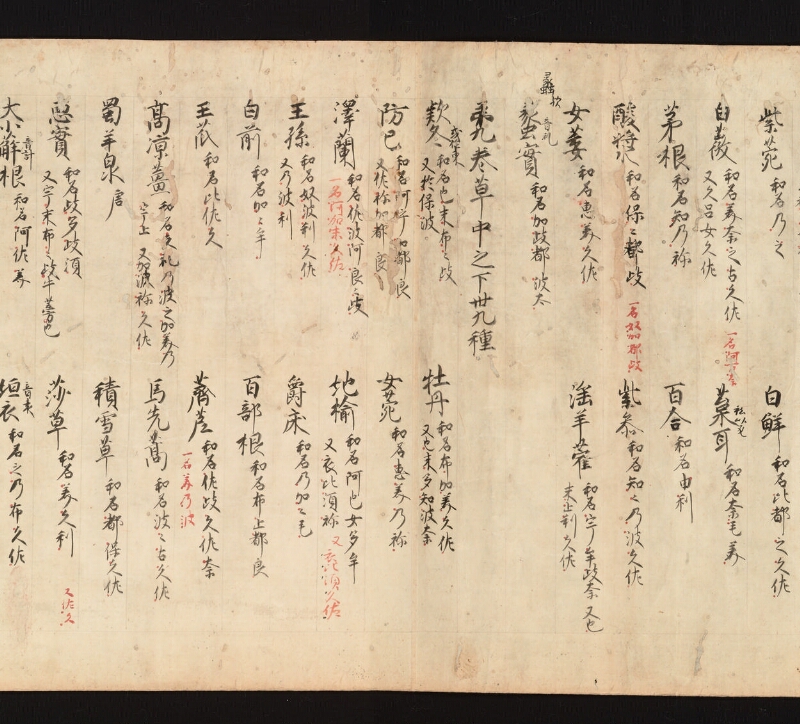 紫菀 和名乃之
白鮮 和名比都之久佐
白薇 和名美奈之古久佐 又久呂女久佐 一名阿
菜耳 和名奈毛美
茅根 和名知乃祢
百合 和名由利
酸漿 和名保々都岐 一名奴加
紫参 和名知々乃波久佐
女萎 和名恵美久佐
淫羊藿 和名宇牟岐奈 又也末止利久佐
蠡實 和名加岐都波太
第九巻草中之下卅九種
欵冬 和名也末布々岐 又於保波
牡丹 和名布加美久佐 又也末多知波奈
防已 和名阿乎加都良 又佐祢加都良
女菀 和名恵美乃祢
澤蘭 和名佐波阿良々岐 一名阿加末久佐
地楡 和名阿也女多牟 又衣比須祢 又衣比須久佐
王孫 和名奴波利久佐 又乃波利
爵床 和名乃加々毛
白前 和名加々牟
百部根 和名布止都良
王瓜 和名比佐久
薺苨 和名佐岐久佐奈 一名美乃波
高凉薑 和名久礼乃波之加美乃宇止 又加波祢久佐
馬先蒿 和名波々古久佐
蜀羊泉 唐
積雪草 和名都保久佐
悪實 和名岐多岐須 又宇末布々岐 牛蒡也
莎草 和名美久利 又佐久
大小薊根 和名阿佐美
垣衣 和名之乃布久佐